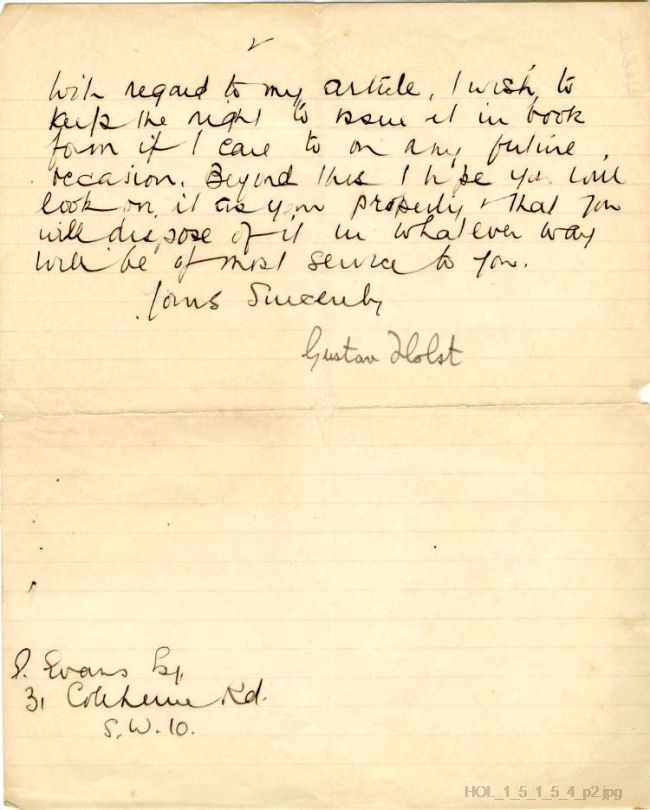 2
With regard to my article, I wish to
keep the right to issue it in book
form if I care to on any future
occasion. Beyond this I hope you will
look on it as your property & that you
will dispose of it in whatever way
will be of most service to you.
Yours Sincerely
Gustav Holst
Evans Esq
31 Coleherne Rd.
S.W.10.
HOL_1_5_1_5_4_p2.jpg